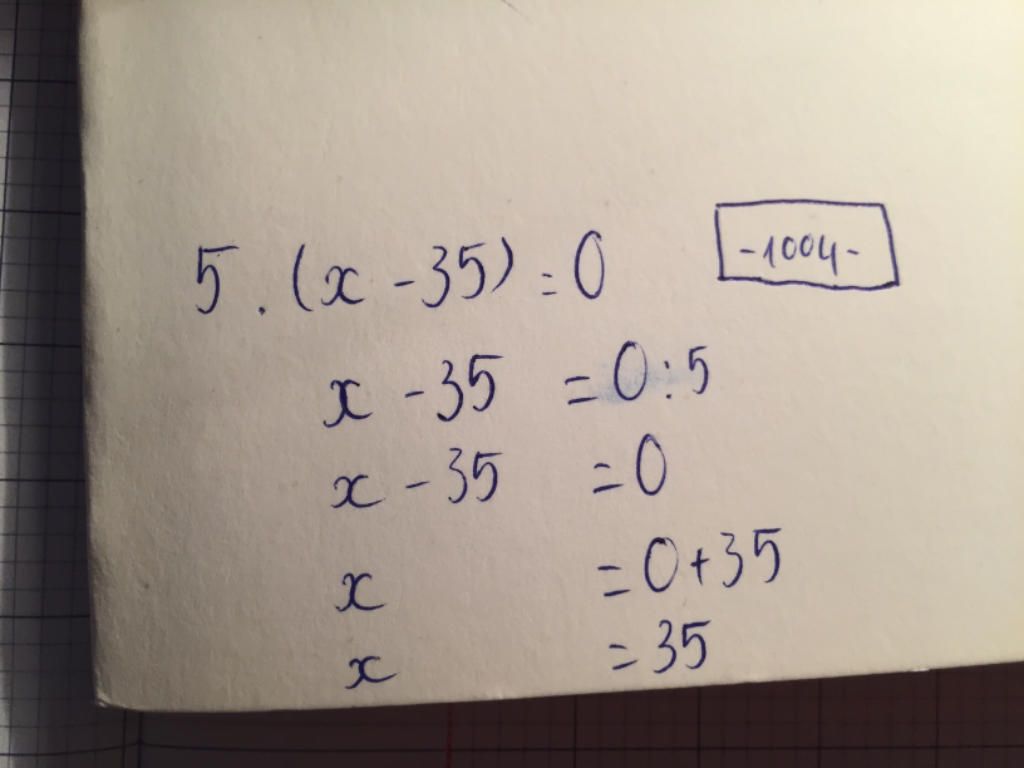 5 . (x - 35) = 0
-1004-
x - 35 = 0 : 5
x - 35 = 0
x = 0 + 35
x = 35